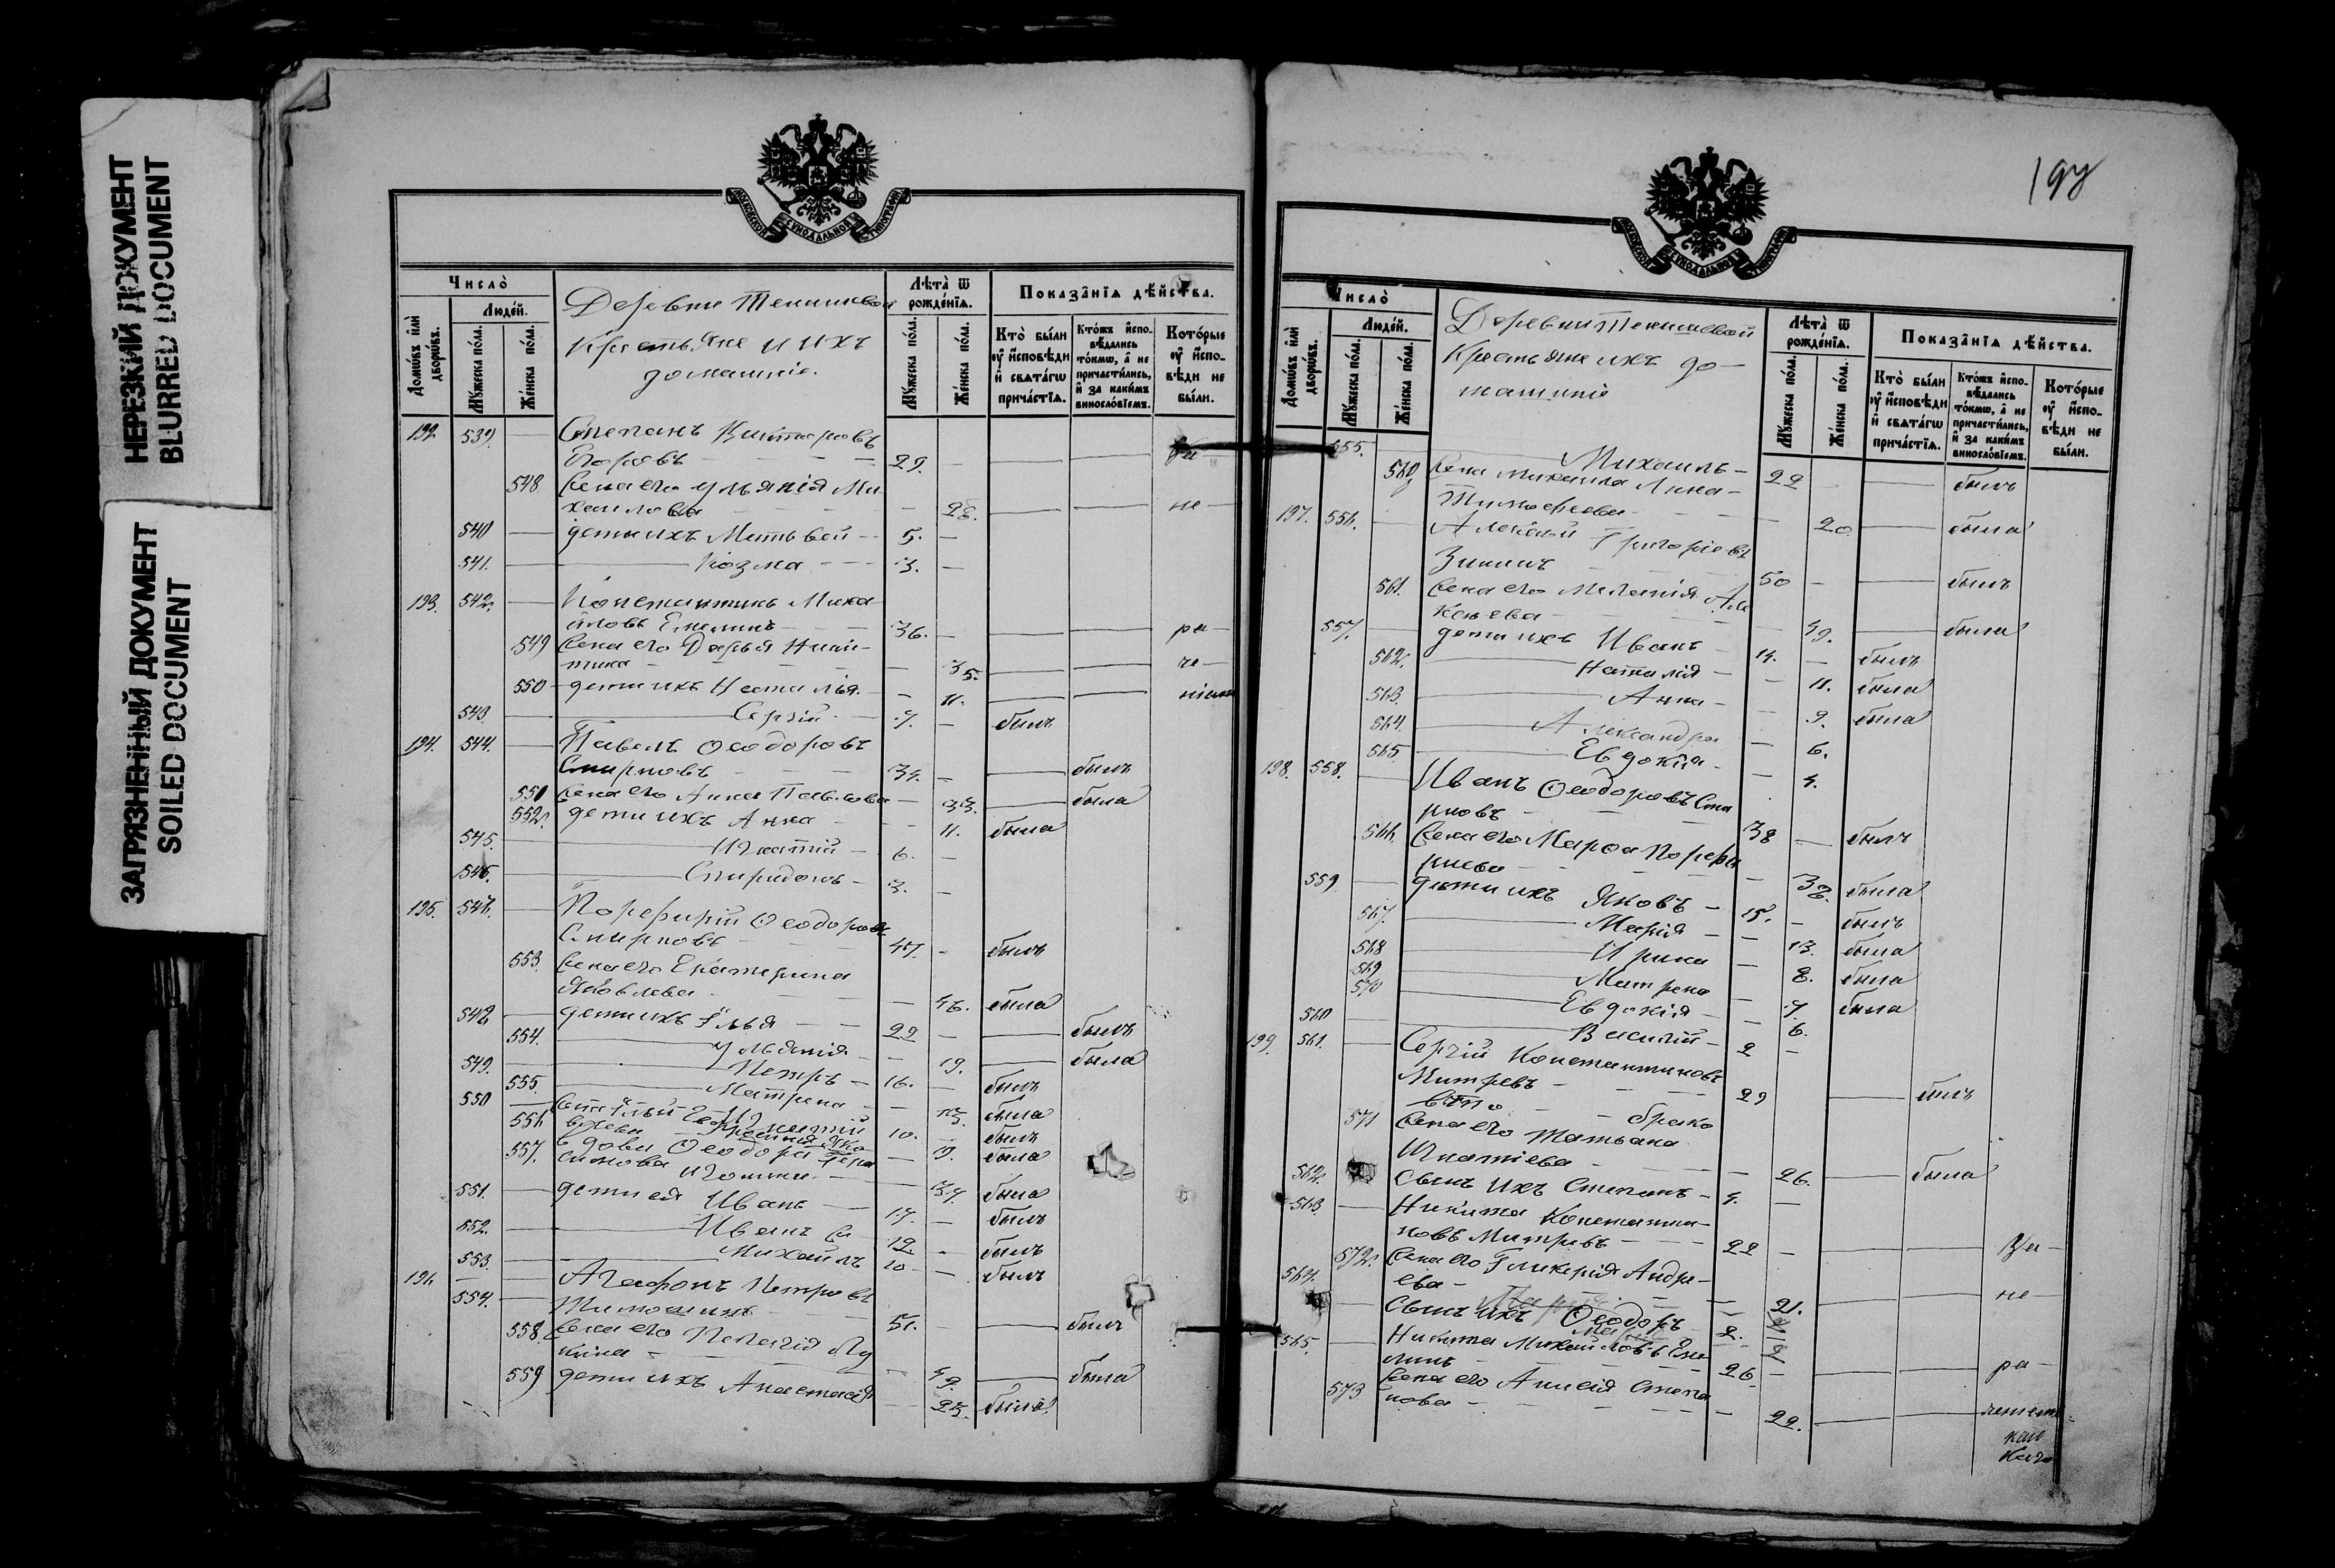 НЕРЕЗКИЙ ДОКУМЕНТ
BLURRED DOCUMENT
ЗАГРЯЗНЕННЫЙ ДОКУМЕНТ
SOILED DOCUMENT
МОСКОВСКОЙ СѴНОДАЛЬНОЙ ТИПОГРАФІИ
Число̀
Домѡ́въ и҆лѝ дворѡ́въ.
Люде́й.
Мꙋ́жеска по́ла.
Же́нска по́ла.
Деревни
Крестьяне и ихъ
домашніе.
Лѣта̀ ѿ рожде́нїѧ.
Мꙋ́жеска по́ла.
Же́нска по́ла.
Показа̑нїѧ дѣ́йства.
Кто̀ бы́ли ᲂу҆ и҆сповѣ́ди и҆ свѧта́гѡ прича́стїѧ.
Кто́жъ и҆сповѣ́дались то́кмѡ, а҆ не причасти́лись, и҆ за каки́мъ виносло́вїемъ.
Кото́рые ᲂу҆ и҆сповѣ́ди не бы́ли.
192. 539. Степанъ Викторовъ
29.
548. Жена его Ульянія Ми-
хаилова 28. не
540 дети ихъ Матвей 5.
541. Козма 3.
193. 542. Константинъ Миха-
иловъ Емелинъ 36. ра
549 Жена его Дарья Ники-
тина 35. че
550 дети ихъ Наталья 11. ніем
543. Сергій 7. былъ
194. 544. Павелъ Ѳеодоровъ
Смирновъ 34. былъ
551 Жена его Анна Павлова 33. была
552. дети ихъ Анна 11. была
545. Игнатій 6.
546. Спиридонъ 3.
195. 547. Порфирій Ѳеодоровъ
Смирновъ 47. былъ
553. Жена его Екатерина
Яковлева 46. была
548 дети ихъ Илья 22 былъ
554. Ульянія 19. была
549. Петръ 16. былъ
555. Матрена 13. была
550 Игнатій 10. былъ
556 9. была
557. вдова Ѳеодора Гера
симова 37 была
551. дети ея Иванъ 17. былъ
552. Иванъ 12. былъ
553. Михаилъ 10 былъ
196 554. Агафонъ Петровъ
Тимошинъ 51. былъ
558. Жена его Пелагія Лу
кина 49. была
559 дети ихъ Анастасія 23. была
197
МОСКОВСКОЙ СѴНОДАЛЬНОЙ ТИПОГРАФІИ
Число̀
Домѡ́въ и҆лѝ дворѡ́въ.
Люде́й.
Мꙋ́жеска по́ла.
Же́нска по́ла.
Деревни
Крестьяне ихъ до-
машніе
Лѣта̀ ѿ рожде́нїѧ.
Мꙋ́жеска по́ла.
Же́нска по́ла.
Показа̑нїѧ дѣ́йства.
Кто̀ бы́ли ᲂу҆ и҆сповѣ́ди и҆ свѧта́гѡ прича́стїѧ.
Кто́жъ и҆сповѣ́дались то́кмѡ, а҆ не причасти́лись, и҆ за каки́мъ виносло́вїемъ.
Кото́рые ᲂу҆ и҆сповѣ́ди не бы́ли.
555. Михаилъ 22 былъ
560 Жена Михаила Анна
Тимофеева 20 была
197. 556. Алексей Григорьевъ
Зининъ 50 былъ
561. Жена его Меланія
49. была
557. дети ихъ Иванъ 14. былъ
562. Наталія 11. была
563 Анна 9. была
564. Александра 6.
565 Евдокія 4.
198. 558. Иванъ Ѳеодоровъ Сми
рновъ 38 былъ
566. Жена его Марѳа Порфи
риева 38. была
559 дети ихъ Яковъ 15. былъ
567. Марія 13. была
568 Ирина 8. была
569 Матрена 7. была
570 Евдокія 6.
560 Василій 2
199. 561. Сергій Константиновъ
Митревъ 29 былъ
брака
571 Жена его Татьяна
Игнатіева 26. была
562. Сынъ ихъ Степанъ 4.
563. Никита Константи-
новъ Митревъ 22
572. Жена его Гликерія Андре-
ева 21. не
564. Сынъ ихъ Ѳеодоръ 2.
565. Никита Михаиловъ Еме
линъ 26 ра
573 Жена его Анисія Степа
нова 22.